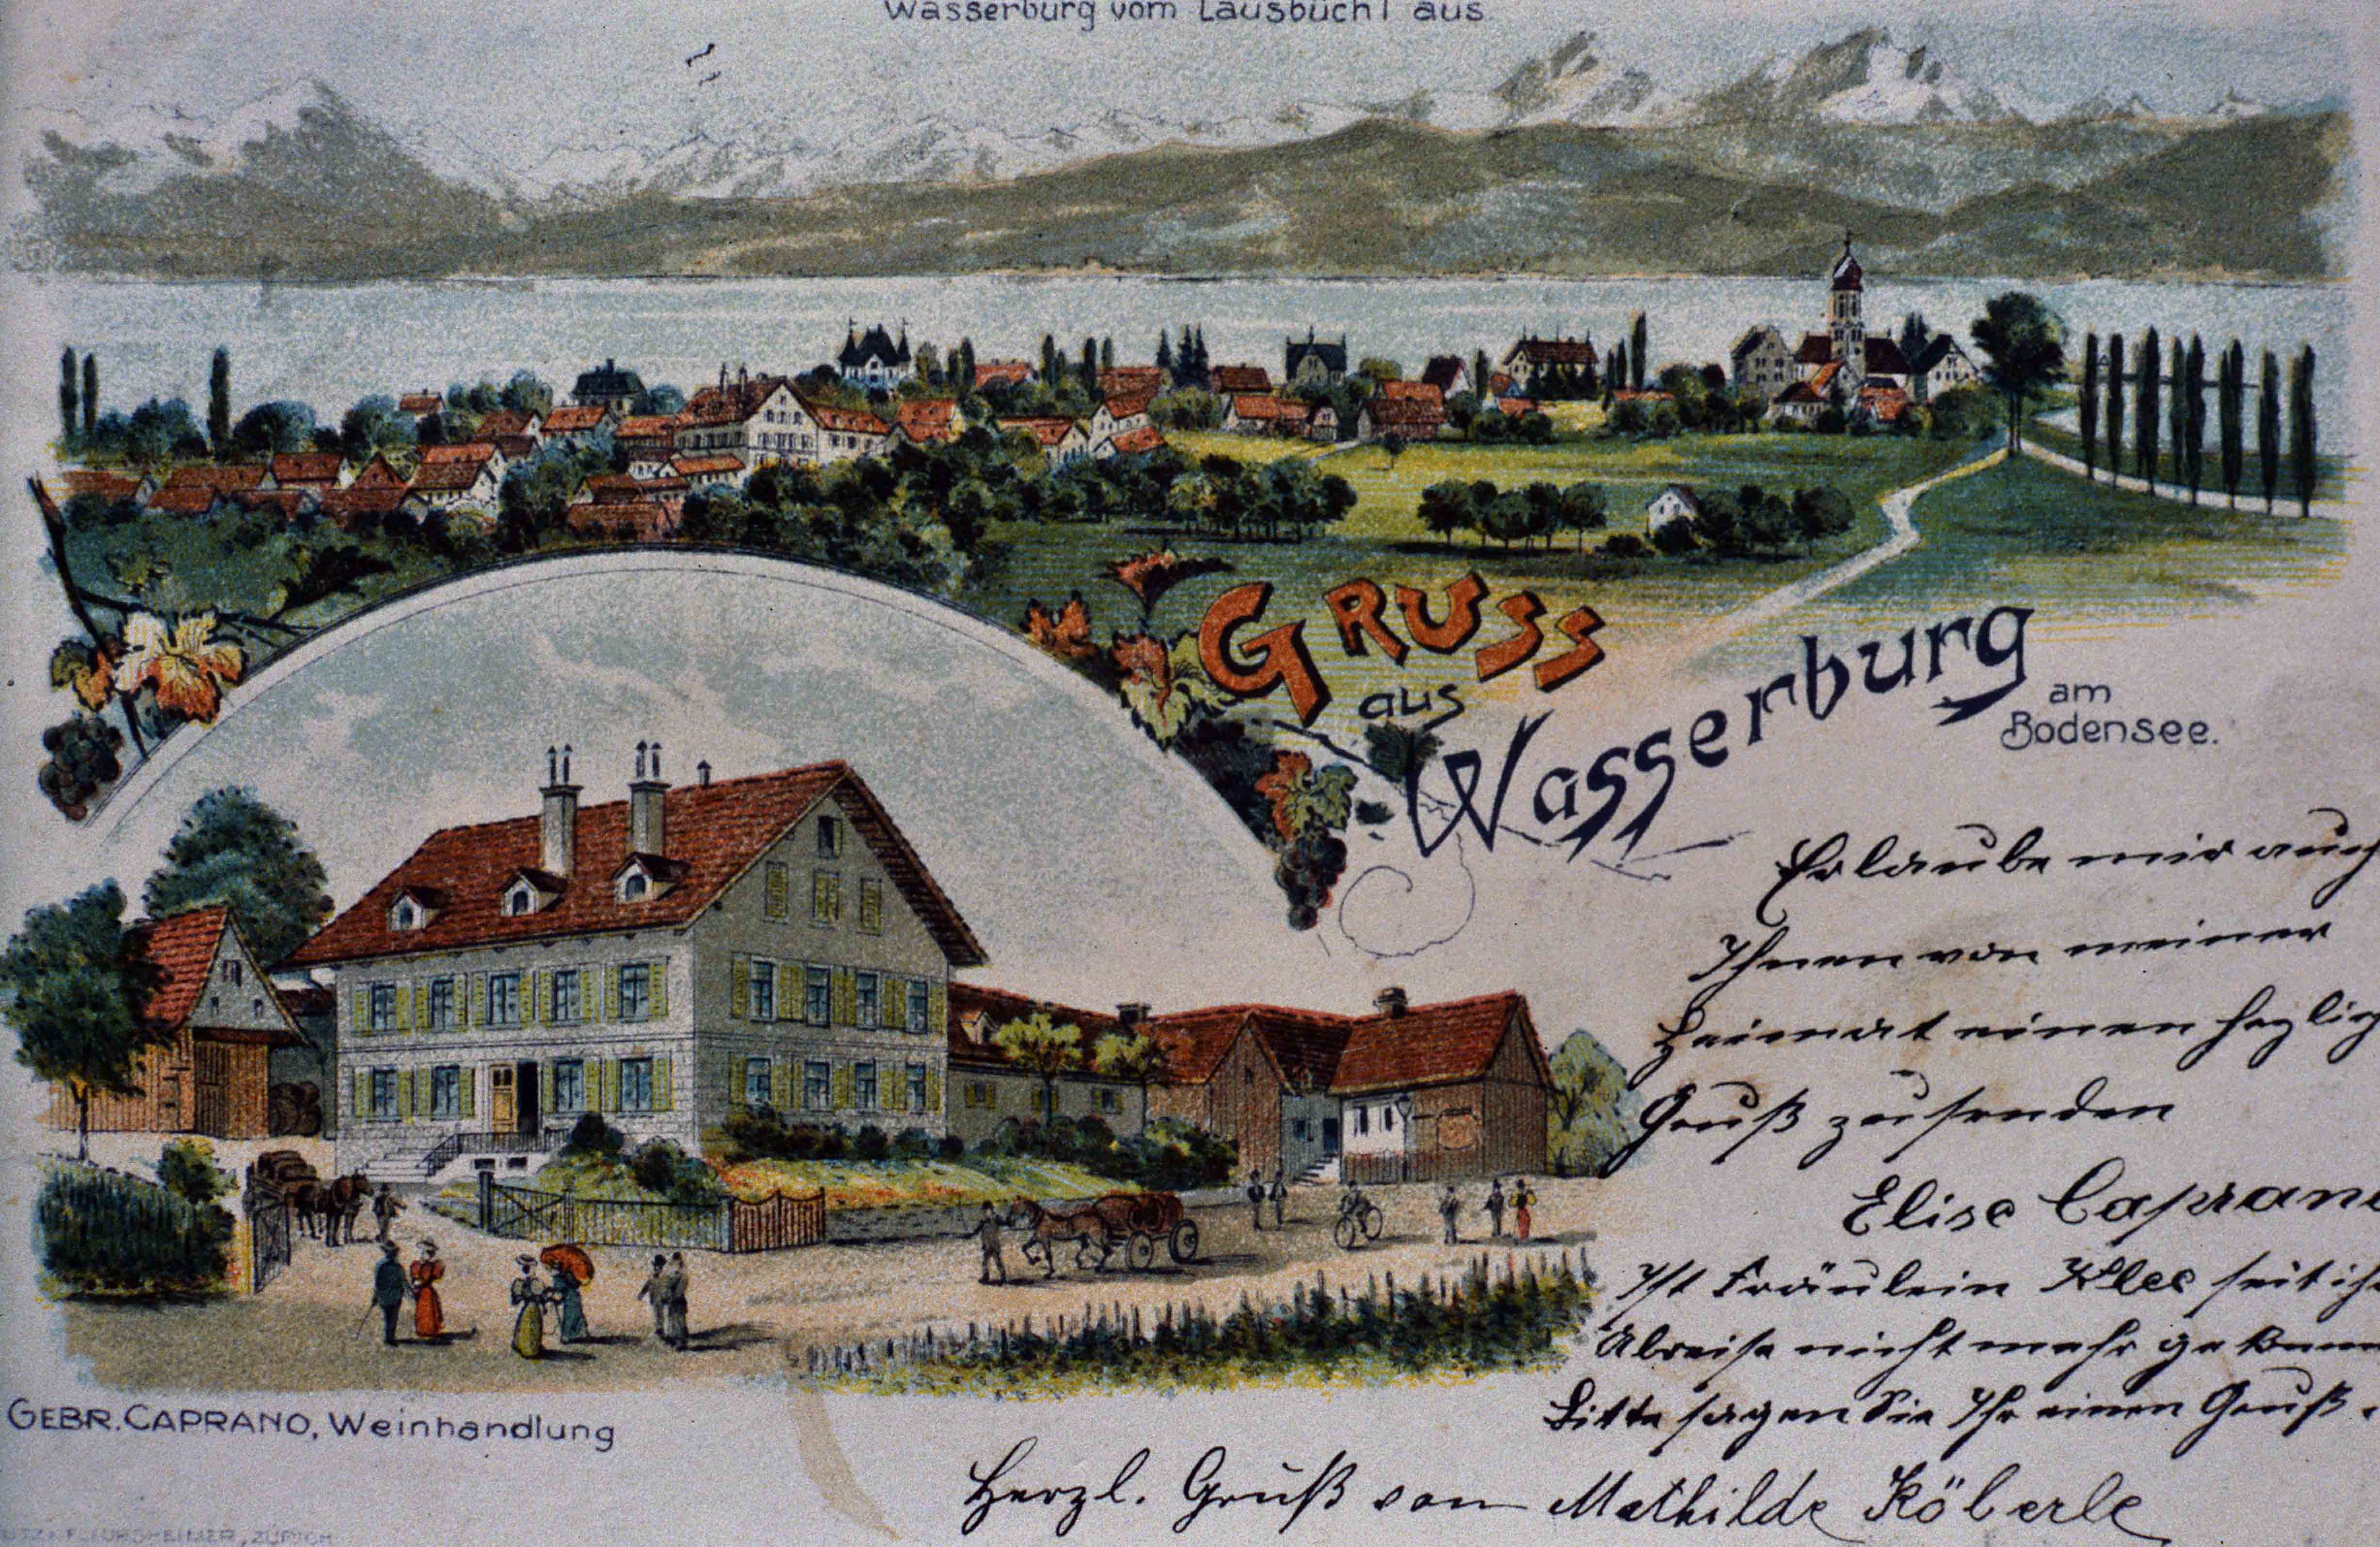 Wasserburg vom Lausbüch'l aus.
GRUSS
aus
Wasserburg
am
Bodensee.
Erlaube mir auch
Ihnen von meiner
Heimat einen herzlich
Gruß zu senden
Elise Caprano
Ist Fräulein Klee seit ih
Abreise nicht mehr gekomm
Bitte sagen Sie Ihr einen Gruß.
Herzl. Gruß von Mathilde Köberle
GEBR. CAPRANO, Weinhandlung
FLEURSHEIMER, ZÜRICH